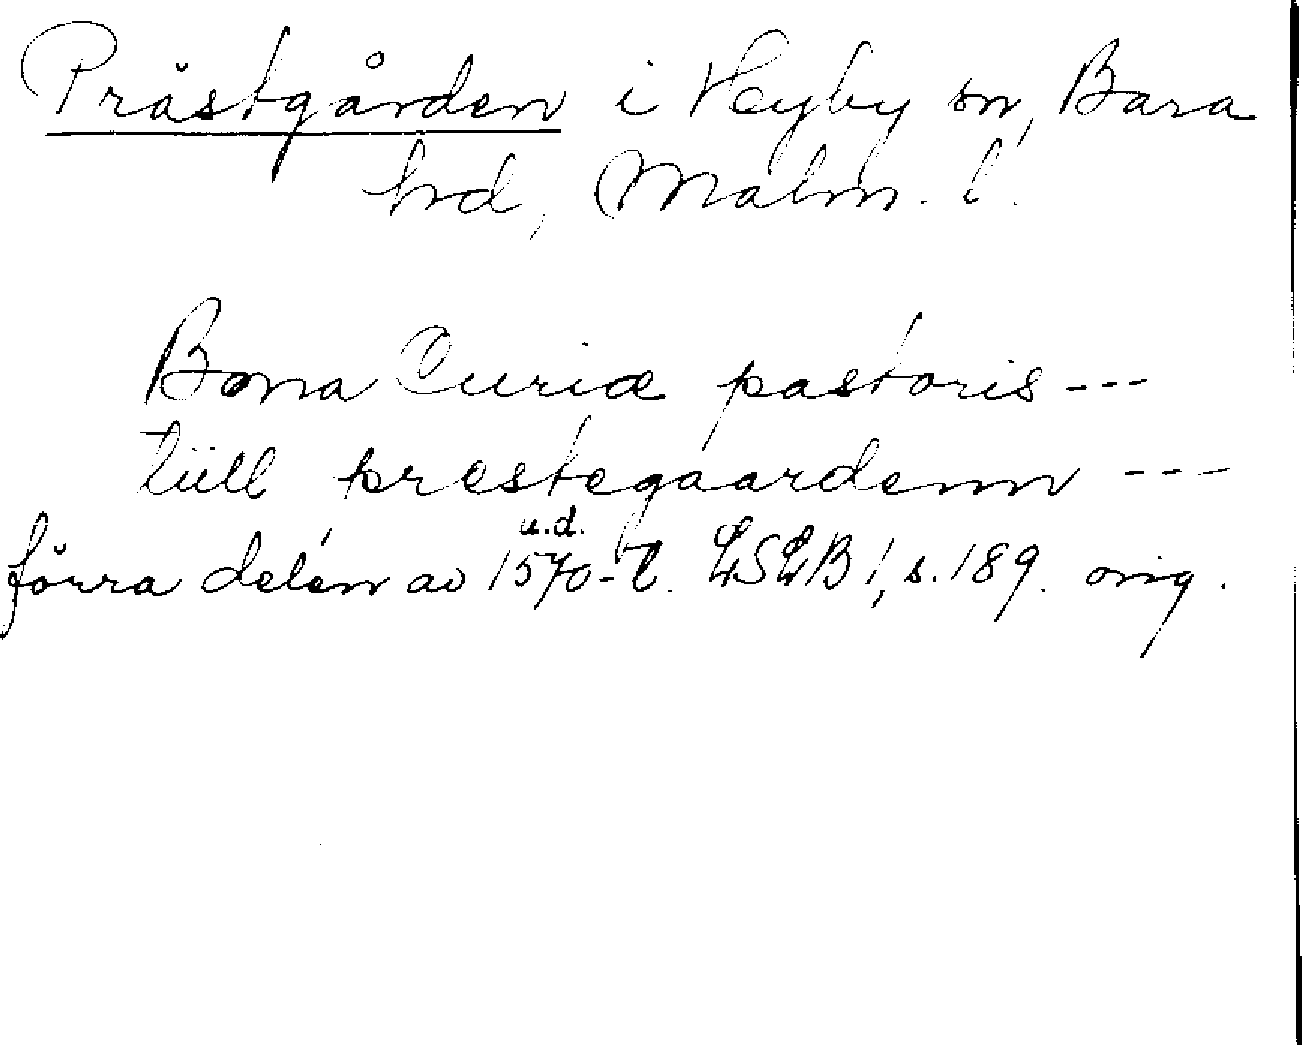 Prästgården i Hyby sn, Bara
hd, Malm. l.
Bona Curiæ pastoris ---
tiill prestegaardenn ---
u.d.
förra delen av 1570-t. LSLB 1, s. 189. orig.